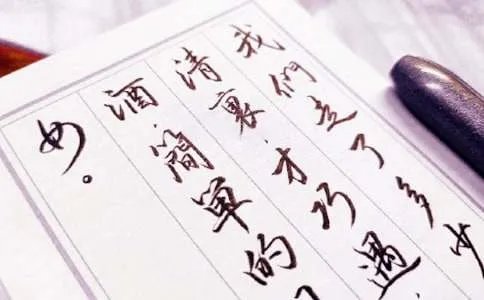 我們走了多少
清裏，才巧遇
酒，簡單的